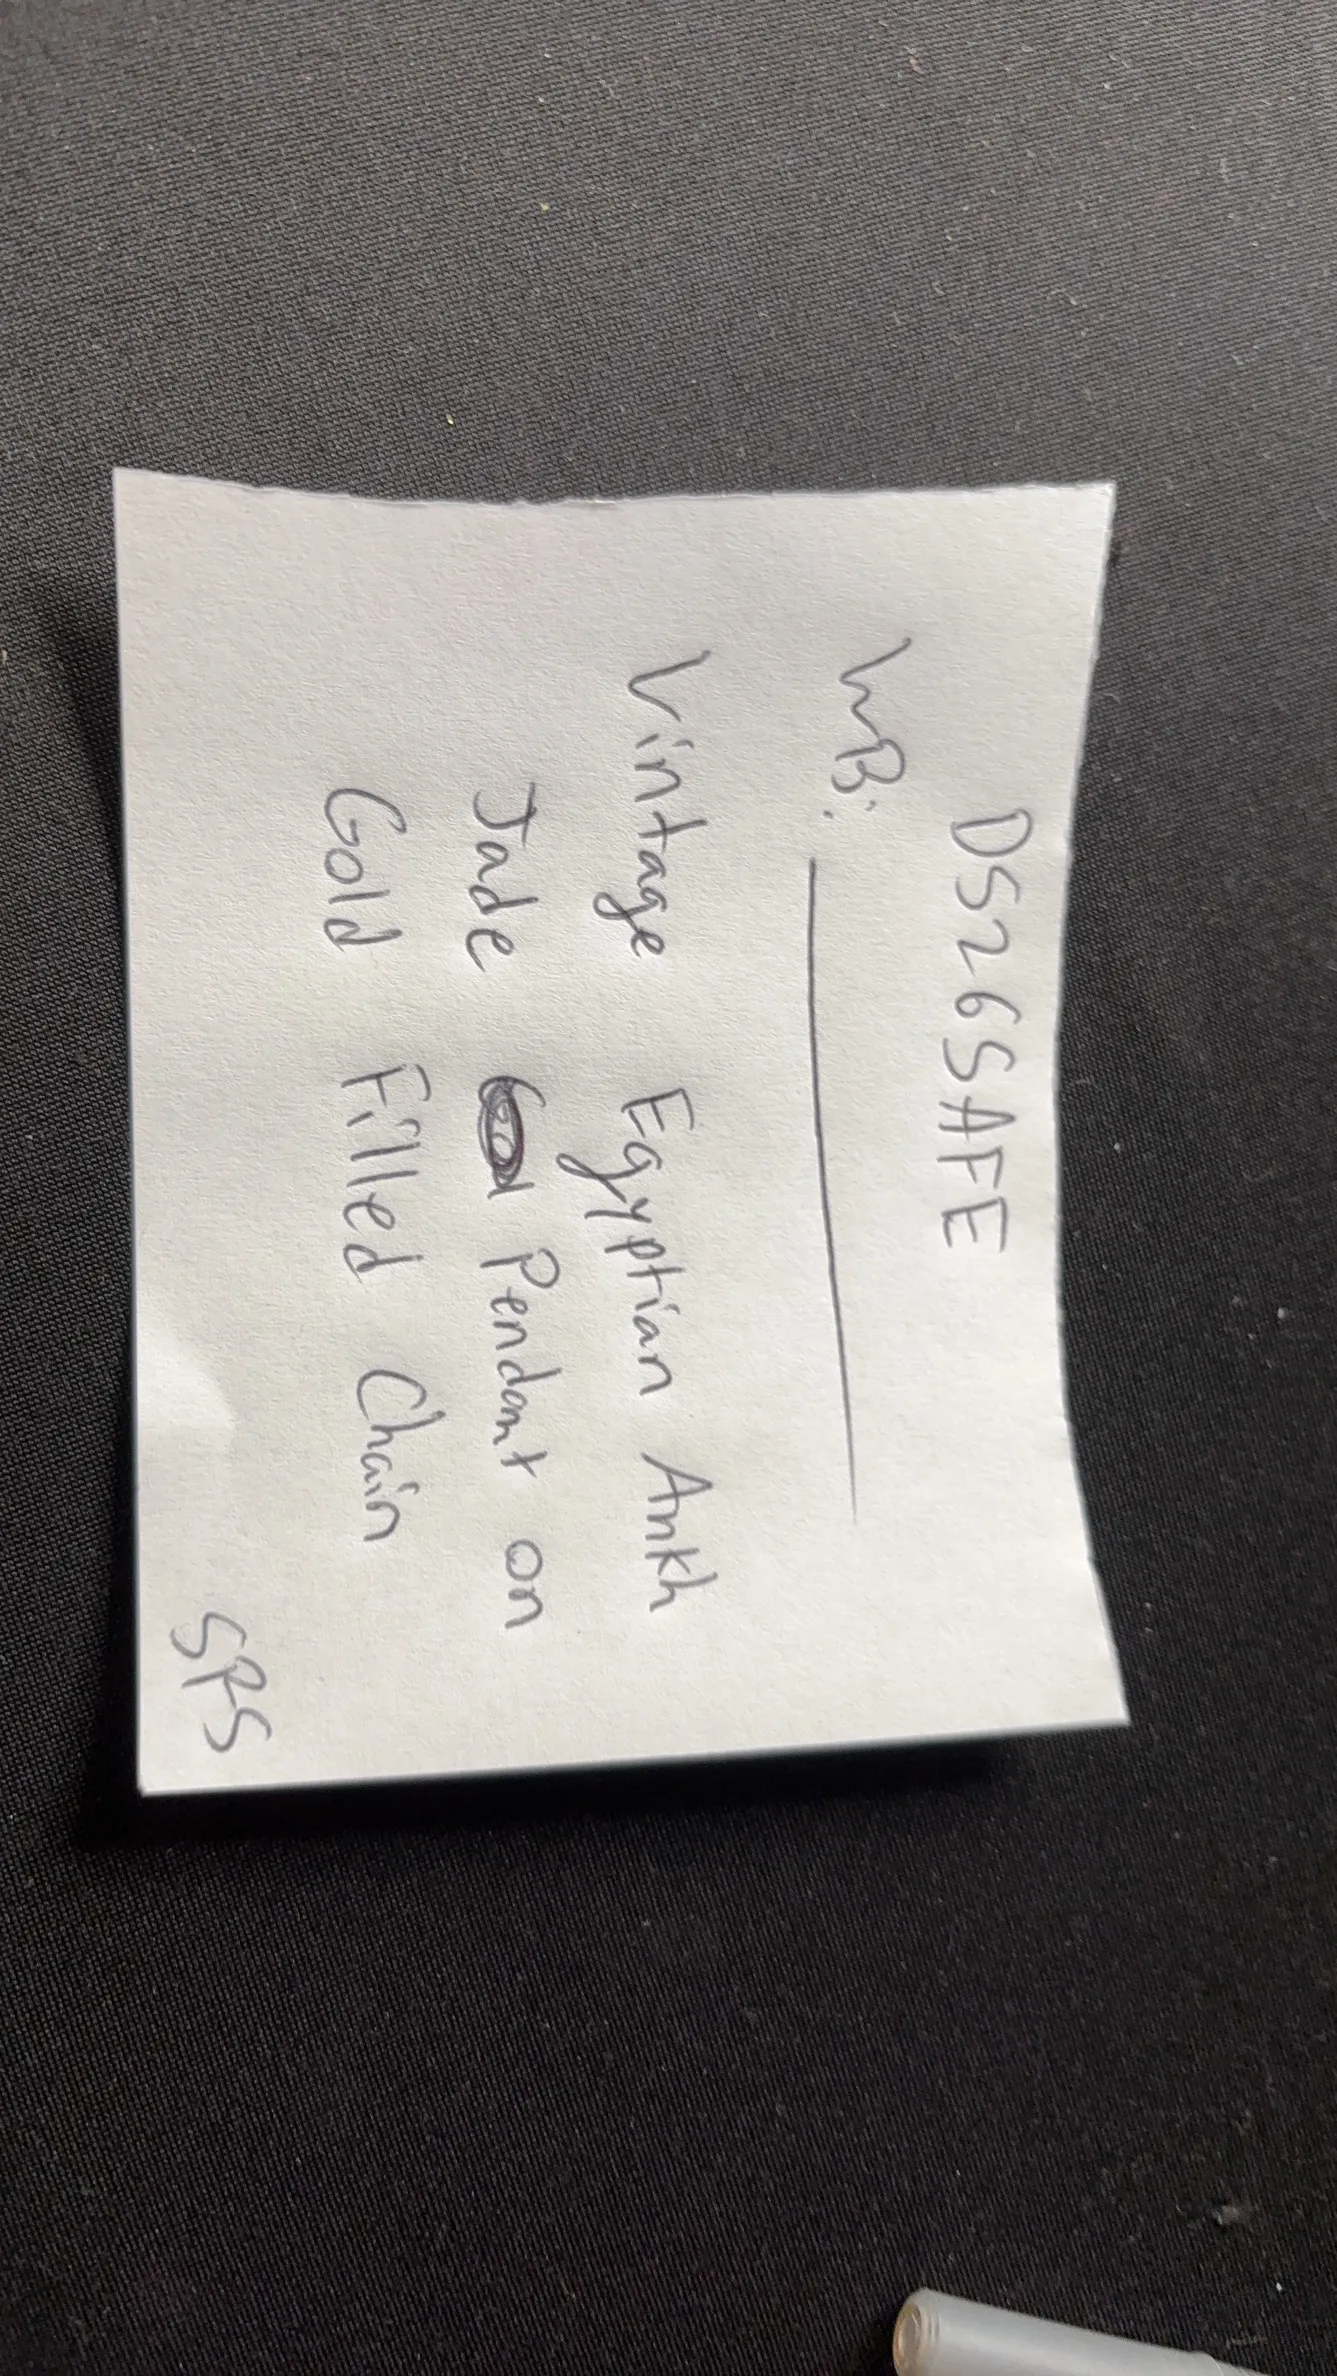 DS26SAFE
WB:
Vintage Egyptian Ankh
Jade Pendant on
Gold Filled Chain
SPS